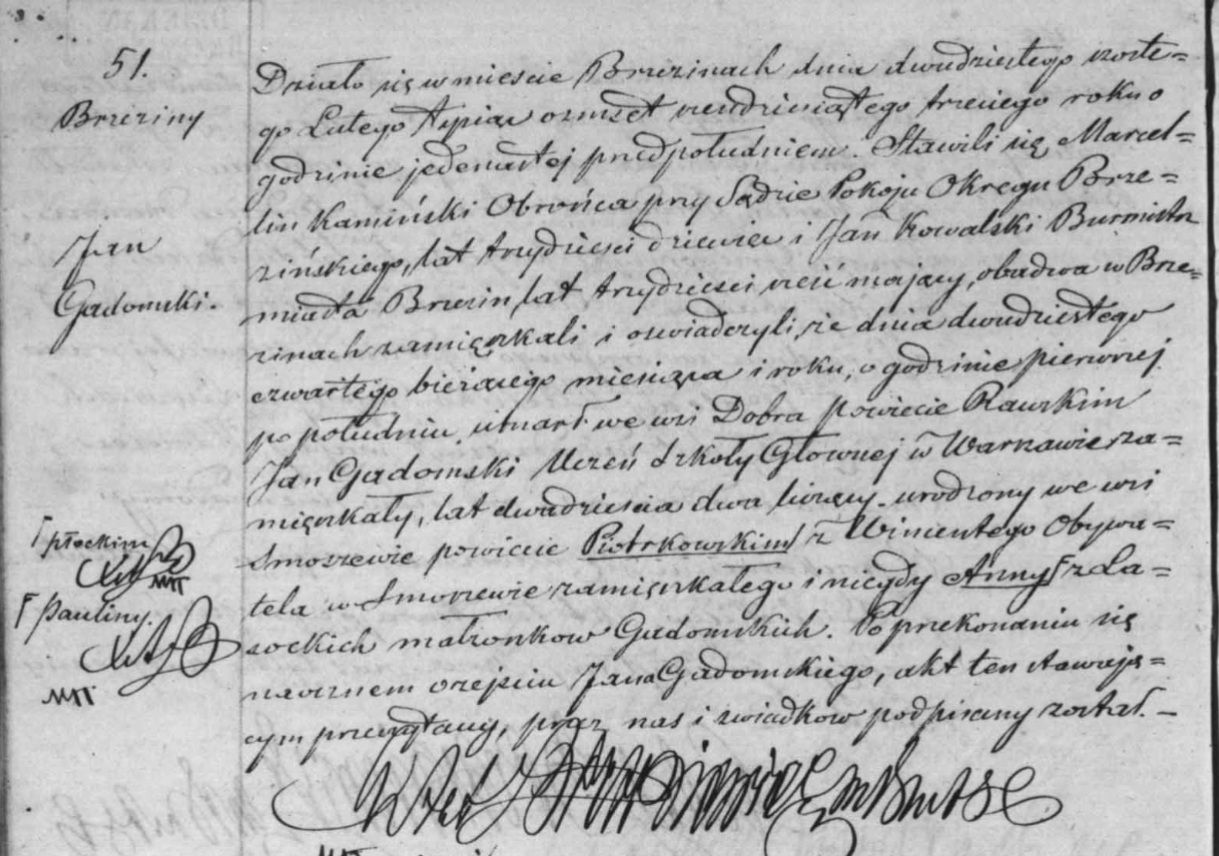 51.
Brzeziny
Jan
Gadomski.
Działo się w mieście Brzezinach dnia dwudziestego szóste=
go Lutego tysiąc ośmset sześdziesiątego trzeciego roku o
godzinie jedenastej przedpołudniem. Stawili się Marcel=
lin Kamiński Obrońca przy Sądzie Pokoju Okręgu Brze=
zińskiego, lat trzydzieści dziewięć i Jan Kowalski Burmistrz
miasta Brzezin, lat trzydzieści sześć mający, obadwa w Brze=
zinach zamięszkali i oświadczyli, że dnia dwudziestego
czwartego bieżącego miesiąca i roku, o godzinie pierwszej
po południu, umarł we wsi Dobra powiecie Rawskim
Jan Gadomski Uczeń Szkoły Głównej w Warszawie za=
mięszkały, lat dwadzieścia dwa liczący, urodzony we wsi
Smorzewie powiecie Piotrkowskim z Wincentego Obywa=
tela w Smorzewie zamięszkałego i niegdy Anny z La=
sockich małżonków Gadomskich. Po przekonaniu się
naocznem o zejściu Jana Gadomskiego, akt ten stawają=
cym przeczytany, przez nas i świadków podpisany został. –
płockim
Pauliny.